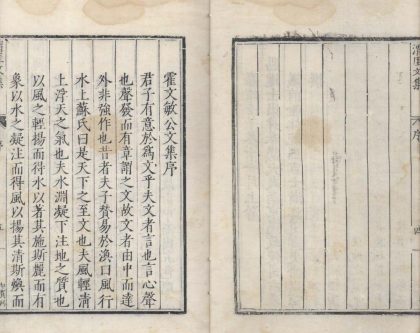 文集
序
四
霍文敏公文集序
君子有意於爲文乎夫文者言也言心聲
也聲發而有章謂之文故文者由中而達
外非強作也昔者夫子贊易於渙曰風行
水上蘇氏曰是天下之至文也夫風輕清
上浮天之氣也夫水淵凝下注地之質也
以風之輕揚而得水以著其施斯麗而有
象以水之凝注而得風以揚其清斯煥而
文集
序
五